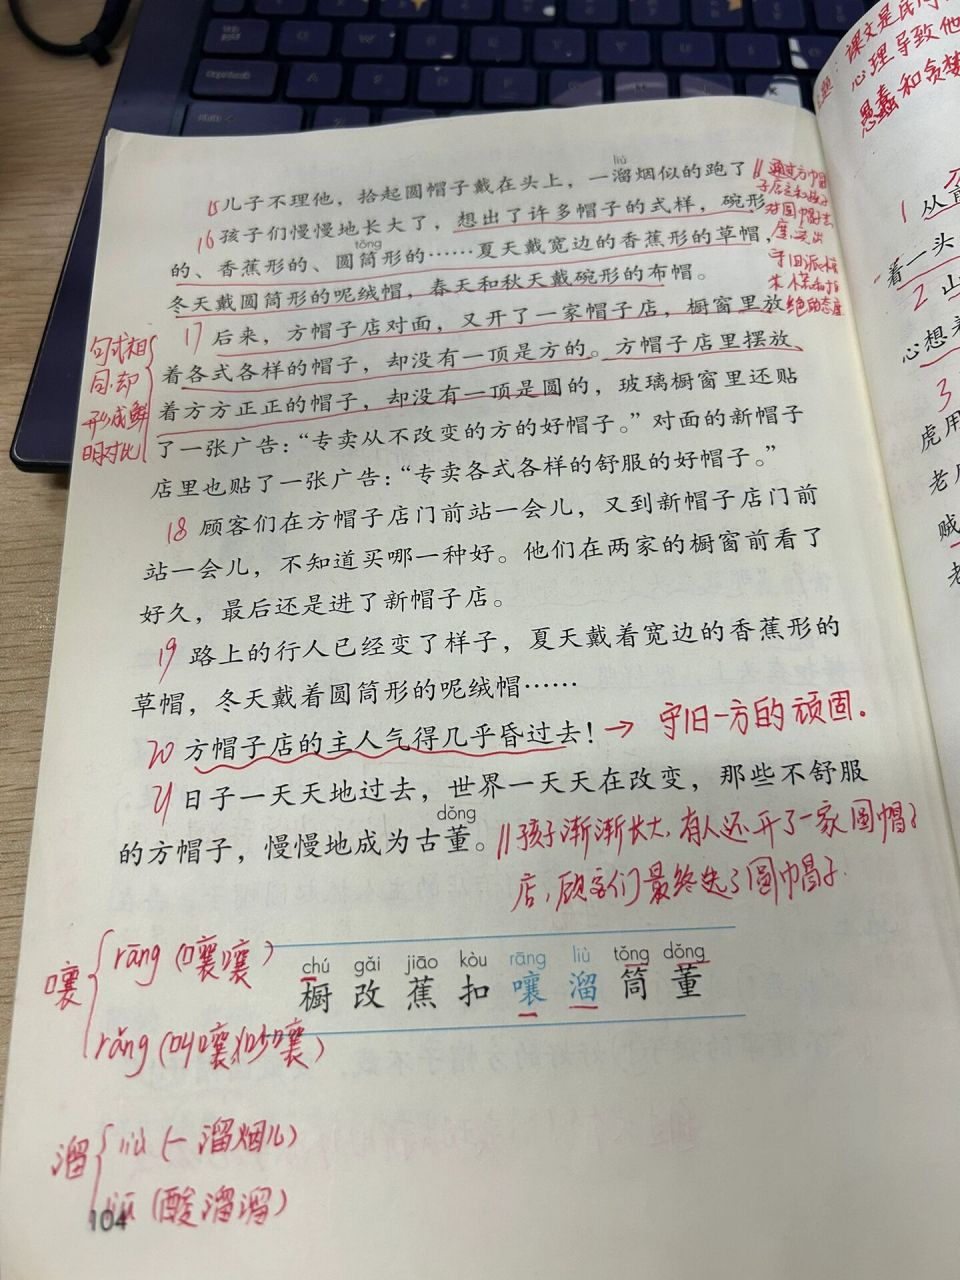 liù
15 儿子不理他，拾起圆帽子戴在头上，一溜烟似的跑了
16 孩子们慢慢地长大了，想出了许多帽子的式样，碗形
tǒng
的、香蕉形的、圆筒形的……夏天戴宽边的香蕉形的草帽，
冬天戴圆筒形的呢绒帽，春天和秋天戴碗形的布帽。
17 后来，方帽子店对面，又开了一家帽子店，橱窗里放
着各式各样的帽子，却没有一顶是方的。方帽子店里摆放
着方方正正的帽子，却没有一顶是圆的，玻璃橱窗里还贴
了一张广告：“专卖从不改变的方的好帽子。”对面的新帽子
店里也贴了一张广告：“专卖各式各样的舒服的好帽子。”
18 顾客们在方帽子店门前站一会儿，又到新帽子店门前
站一会儿，不知道买哪一种好。他们在两家的橱窗前看了
好久，最后还是进了新帽子店。
19 路上的行人已经变了样子，夏天戴着宽边的香蕉形的
草帽，冬天戴着圆筒形的呢绒帽……
20 方帽子店的主人气得几乎昏过去！→ 守旧一方的顽固.
21 日子一天天地过去，世界一天天在改变，那些不舒服
dǒng
的方帽子，慢慢地成为古董。
‖孩子渐渐长大，有人还开了一家圆帽子
店，顾客们最终选了圆巾帽子.
句式相
同，却
形成鲜
明对比
‖通过方帽
子店主和孩子
对圆帽子
chú gǎi jiāo kòu rāng liù tǒng dǒng
橱 改 蕉 扣 嚷 溜 筒 董
嚷
rāng (嚷嚷)
rǎng (叫嚷)(吵嚷)
溜
liù (一溜烟儿)
liū (酸溜溜)
104
课文是
心理导致他
愚蠢和贪
1 从前
着一头
2 山
心想
3
虎用
老
贼
老